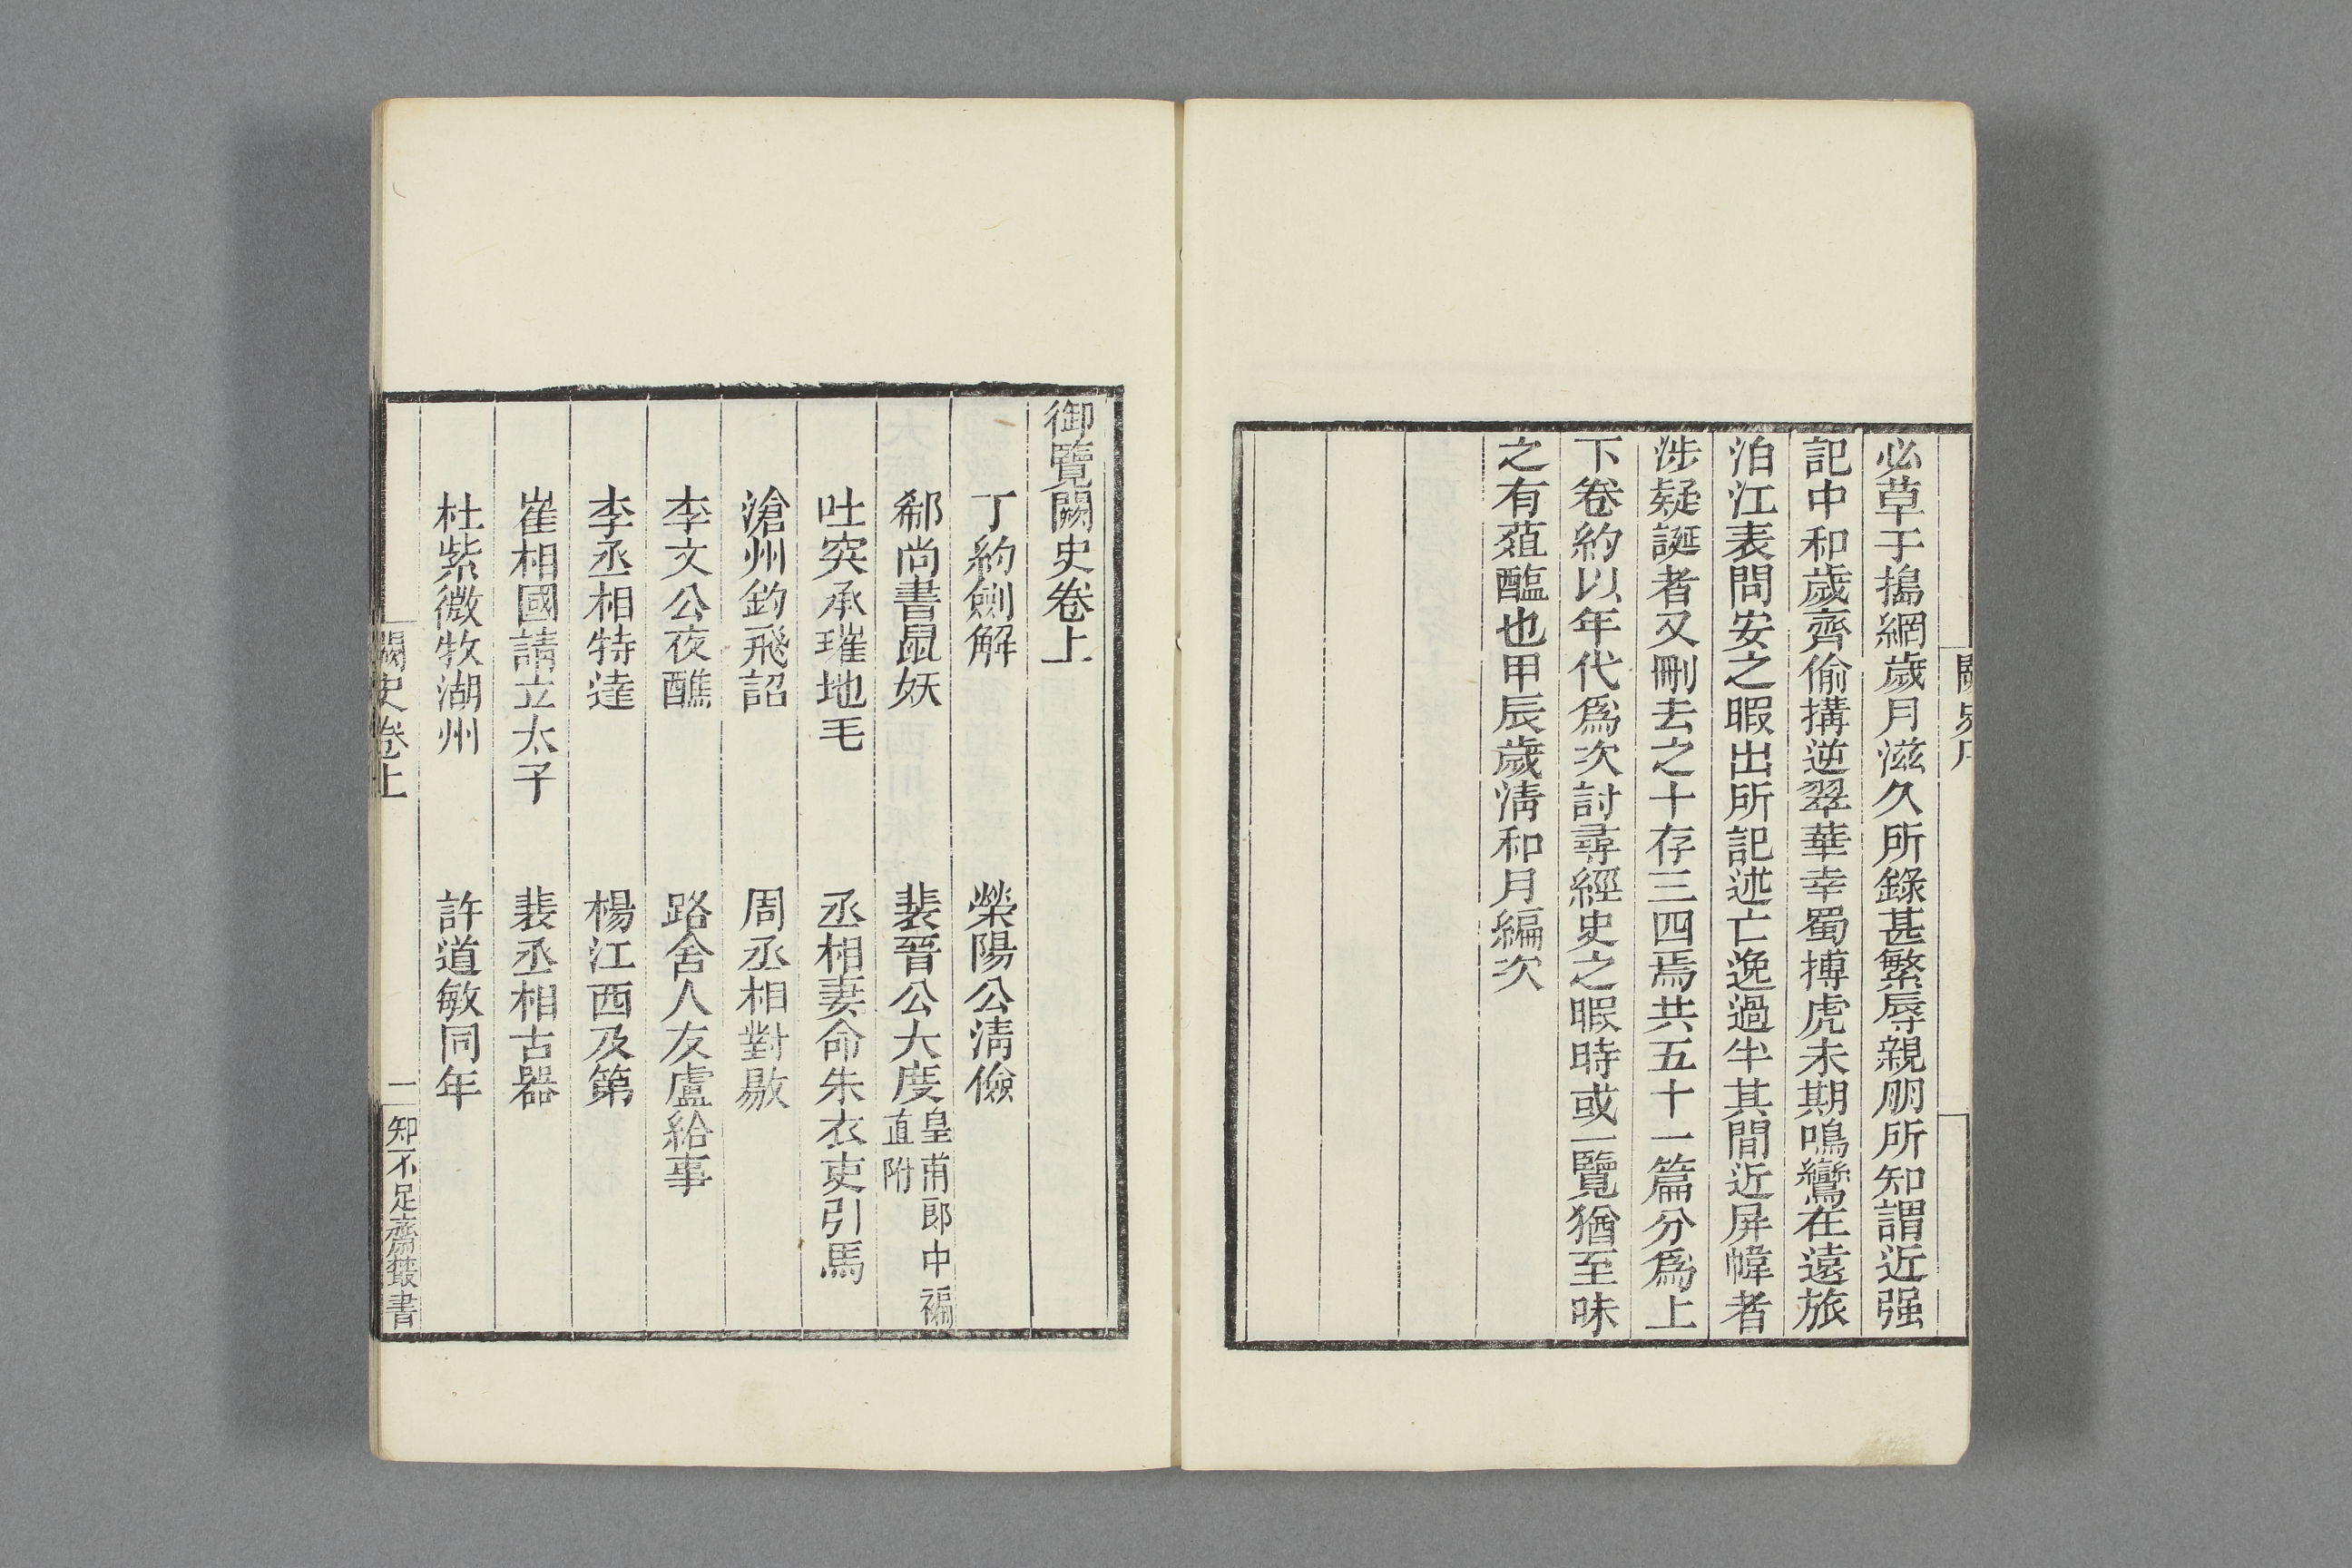 闕史序
必草于搗網歲月滋久所錄甚繁辱親朋所知謂近强
記中和歲齊偷搆逆翠華幸蜀搏虎未期鳴鸞在遠旅
泊江表問安之暇出所記述亡逸過半其間近屏幃者
涉疑誕者又刪去之十存三四焉共五十一篇分爲上
下卷約以年代爲次討尋經史之暇時或一覽猶至味
之有葅醢也甲辰歲淸和月編次
御覽闕史卷上
丁約劍解 滎陽公淸儉
郗尚書鼠妖 裴晉公大度 皇甫郎中褊直附
吐突承璀地毛 丞相妻命朱衣吏引馬
滄州釣飛詔 周丞相對敭
李文公夜醮 路舍人友盧給事
李丞相特達 楊江西及第
崔相國請立太子 裴丞相古器
杜紫微牧湖州 許道敏同年
闕史卷上 一 知不足齋叢書